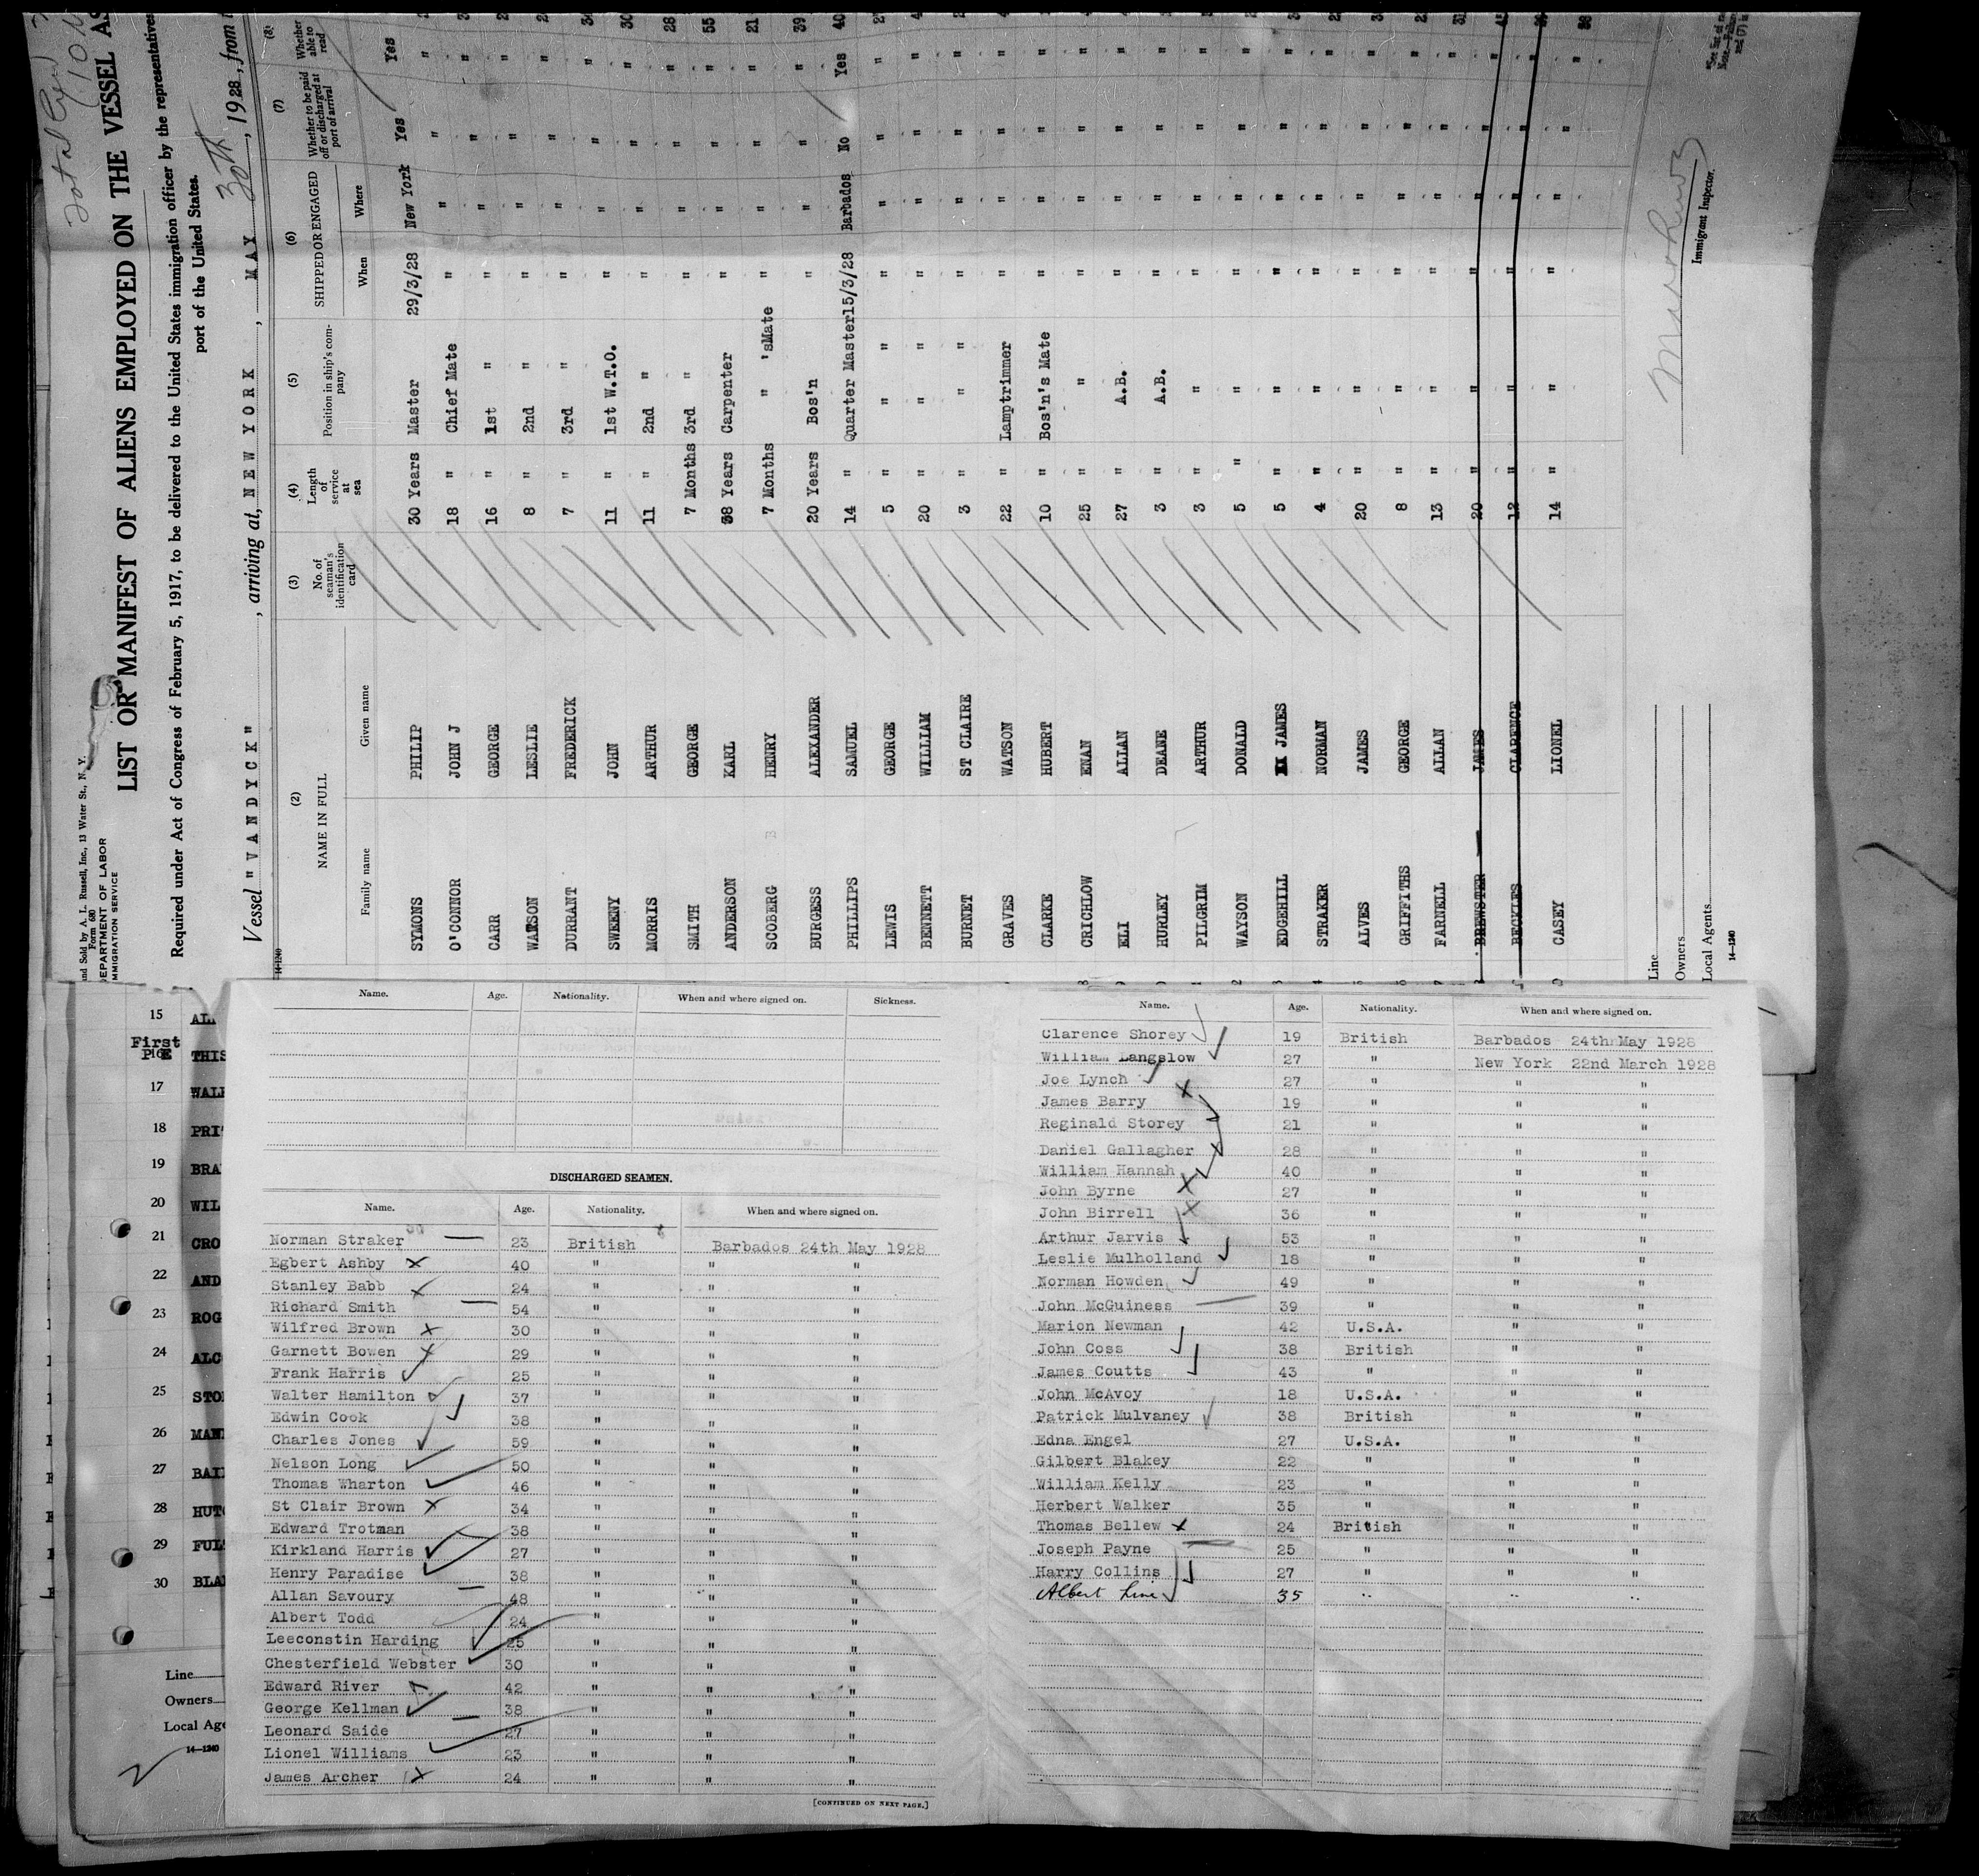 and Sold by A. L. Russell, Inc., 13 Water St., N. Y.
Form 680
DEPARTMENT OF LABOR
IMMIGRATION SERVICE
LIST OR MANIFEST OF ALIENS EMPLOYED ON THE VESSEL AS
Required under Act of Congress of February 5, 1917, to be delivered to the United States immigration officer by the representatives
port of the United States.
Vessel "VANDYCK", arriving at, NEW YORK, MAY 30th, 1928, from
14-1240
(2) (3) (4) (5) (6) (7) (8)
NAME IN FULL No. of seaman's identification card Length of service at sea Position in ship's company SHIPPED OR ENGAGED Whether to be paid off or discharged at port of arrival Whether able to read
Family name Given name When Where
SYMONS PHILIP 30 Years Master 29/3/28 New York Yes Yes
O'CONNOR JOHN J 18 " Chief Mate " " " "
CARR GEORGE 16 " 1st " " " " "
WATSON LESLIE 8 " 2nd " " " " "
DURRANT FREDERICK 7 " 3rd " " " " "
SWEENY JOHN 11 " 1st W.T.O. " " " "
MORRIS ARTHUR 11 " 2nd " " " " "
SMITH GEORGE 7 Months 3rd " " " " " 28
ANDERSON KARL 38 Years Carpenter " " " " 55
SCOBERG HENRY 7 Months " 'sMate " " " " 21
BURGESS ALEXANDER 20 Years Bos'n " " " " 39
PHILLIPS SAMUEL 14 " Quarter Master 15/3/28 Barbados No Yes 40
LEWIS GEORGE 5 " " " " " "
BENNETT WILLIAM 20 " " " " " "
BURNET ST CLAIRE 3 " " " " " "
GRAVES WATSON 22 " Lamptrimmer " " " "
CLARKE HUBERT 10 " Bos'n's Mate " " " "
CRICHLOW ENAN 25 " " " " " "
ELI ALLAN 27 " A.B. " " " "
HURLEY DEANE 3 " A.B. " " " "
PILGRIM ARTHUR 3 " " " " " "
WAYSON DONALD 5 " " " " " "
EDGEHILL JAMES 5 " " " " " "
STRAKER NORMAN 4 " " " " " "
ALVES JAMES 20 " " " " " "
GRIFFITHS GEORGE 8 " " " " " "
FARNELL ALLAN 13 " " " " " "
BREWSTER JAMES 20 " " " " " "
BECKLES CLARENCE 12 " " " " " "
CASEY LIONEL 14 " " " " " "
Line
Owners
Local Agents
14-1240
Immigrant Inspector.
15
First
PGE
16 THIS
17
18
19
20
21
22
23
24
25
26
27
28
29
30
Line
Owners
Local Age
14-1240
Name. Age. Nationality. When and where signed on. Sickness.
DISCHARGED SEAMEN.
Name. Age. Nationality. When and where signed on.
Norman Straker 23 British Barbados 24th May 1928
Egbert Ashby 40 " " "
Stanley Babb 24 " " "
Richard Smith 54 " " "
Wilfred Brown 30 " " "
Garnett Bowen 29 " " "
Frank Harris 25 " " "
Walter Hamilton 37 " " "
Edwin Cook 38 " " "
Charles Jones 59 " " "
Nelson Long 50 " " "
Thomas Wharton 46 " " "
St Clair Brown 34 " " "
Edward Trotman 38 " " "
Kirkland Harris 27 " " "
Henry Paradise 38 " " "
Allan Savoury 48 " " "
Albert Todd 24 " " "
Leeconstin Harding 25 " " "
Chesterfield Webster 30 " " "
Edward River 42 " " "
George Kellman 38 " " "
Leonard Saide 27 " " "
Lionel Williams 23 " " "
James Archer 24 " " "
[CONTINUED ON NEXT PAGE.]
Name. Age. Nationality. When and where signed on.
Clarence Shorey 19 British Barbados 24th May 1928
William Langslow 27 " New York 22nd March 1928
Joe Lynch 27 " " "
James Barry 19 " " "
Reginald Storey 21 " " "
Daniel Gallagher 28 " " "
William Hannah 40 " " "
John Byrne 27 " " "
John Birrell 36 " " "
Arthur Jarvis 53 " " "
Leslie Mulholland 18 " " "
Norman Howden 49 " " "
John McGuiness 39 " " "
Marion Newman 42 U.S.A. " "
John Coss 38 British " "
James Coutts 43 " " "
John McAvoy 18 U.S.A. " "
Patrick Mulvaney 38 British " "
Edna Engel 27 U.S.A. " "
Gilbert Blakey 22 " " "
William Kelly 23 " " "
Herbert Walker 35 " " "
Thomas Bellew 24 British " "
Joseph Payne 25 " " "
Harry Collins 27 " " "
Albert 35 " " "